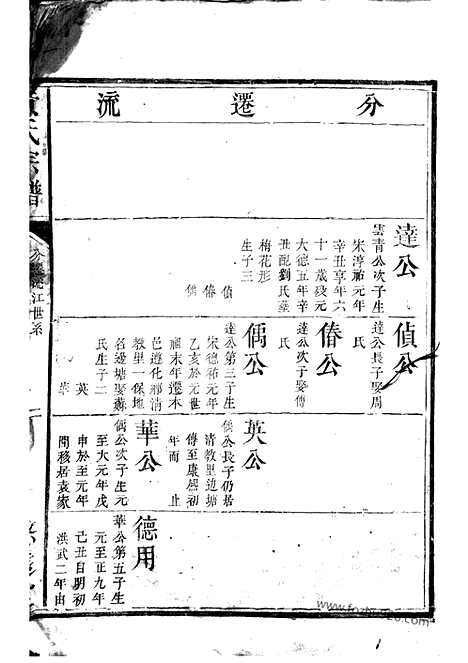 分遷流
達公
雲青公次子生
宋淳祐元年
辛丑享年六
十一歲歿元
大德五年辛
丑配劉氏葬
梅花形
生子三
偵
偆
偶
偵公
達公長子娶周
氏
偆公
達公次子娶傅
氏
偶公
達公第三子生
宋德祐元年
乙亥於元世
祖末年遷本
邑遵化鄉清
教里一保地
名邊塘娶蘇
氏生子二
英
華
英公
偶公長子仍居
清教里邊塘
傳至康熙初
年而止
華公
偶公次子生元
至大元年戊
申於至元年
間移居袁家
德用
華公第五子生
元至正九年
己丑自明初
洪武二年由
氏宗譜
分遷流江世系